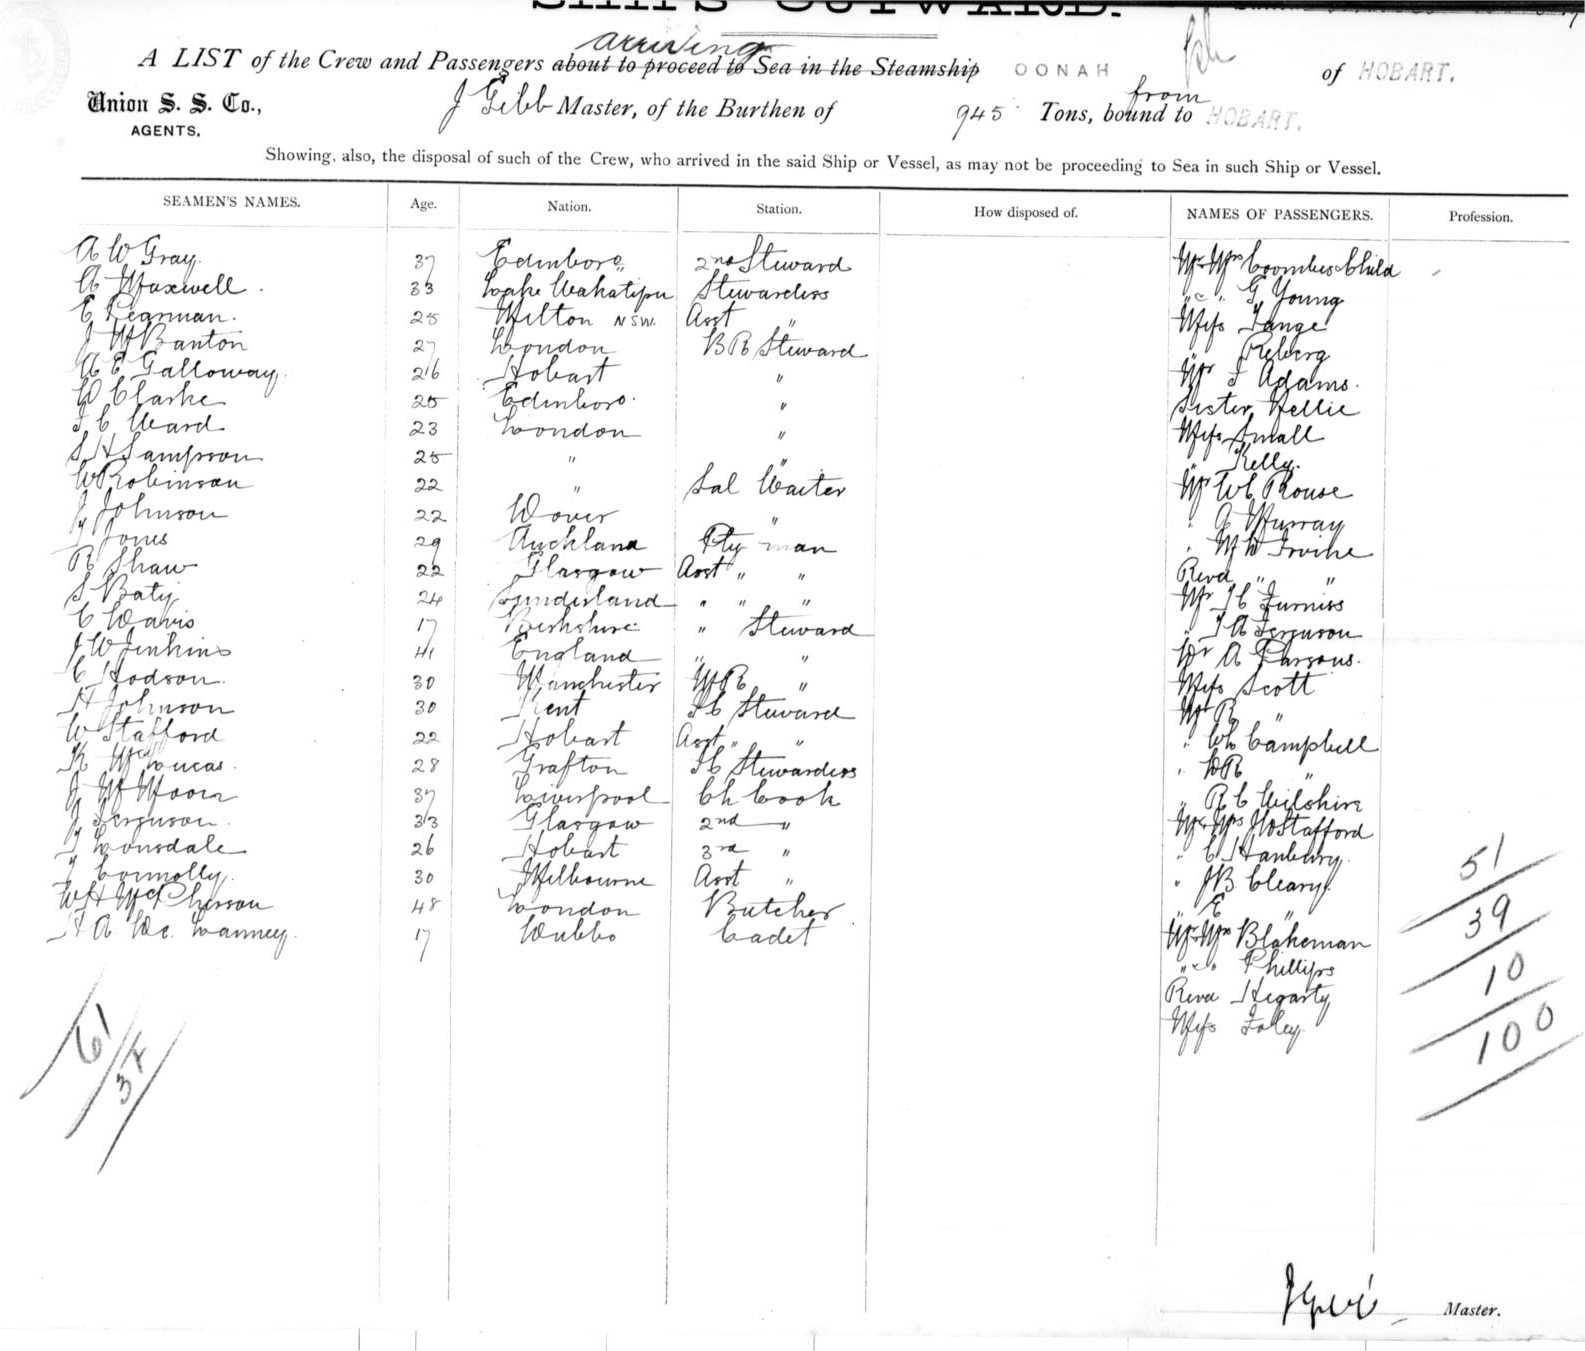 SHIPS OUTWARD.
arriving
A LIST of the Crew and Passengers about to proceed to Sea in the Steamship OONAH of HOBART.
Union S. S. Co., J Gibb Master, of the Burthen of 945 Tons, bound to from HOBART.
AGENTS.
Showing, also, the disposal of such of the Crew, who arrived in the said Ship or Vessel, as may not be proceeding to Sea in such Ship or Vessel.
SEAMEN'S NAMES. Age. Nation. Station. How disposed of. NAMES OF PASSENGERS. Profession.
A W Gray. 37 Edinboro 2nd Steward Mr Mrs Coombes Child
A Maxwell. 33 Lake Wakatipu Stewardess " & " G Young
E Pegrman. 25 Milton NSW. Asst " Miss Lange
J W Banton 27 London B R Steward " Reberg
A E Galloway. 26 Hobart " Mr F Adams.
W Clarke 25 Edinboro. " Sister Nellie
F C Ward 23 London " Miss Small
S H Sampson 25 " " " Kelly.
W Robinson 22 " Sal Waiter Mr W C Rouse
J Johnson 22 Dover " " A Murray
J Jones 29 Auckland Pty man " M W Irvine
R Shaw 22 Glasgow Asst " " Revd " "
S Baty 24 Sunderland " " " Mr F C Furniss
C Davis 17 Berkshire " Steward " J A Ferguson
J W Jenkins 41 England " " Dr A Parsons.
C Hodson. 30 Manchester M R " Miss Scott
H Johnson 30 Kent F C Steward Mr R "
W Stafford 22 Hobart Asst " " " Wh Campbell
K McLucas. 28 Grafton F C Stewardess " W R "
J W Moor 37 Liverpool Ch Cook " R C Wilshire
J Ferguson. 33 Glasgow 2nd " Mr & Mrs J W Stafford
J Lonsdale 26 Hobart 3rd " " C Hanbury.
J Connolly. 30 Melbourne Asst " " J B Cleary.
W H McPherson 48 London Butcher " E "
H A De Lanney. 17 Dubbo Cadet Mr Mrs Blakeman
" & " Phillips
Revd Hegarty
Miss Foley.
51
39
10
100
61
34
Master.